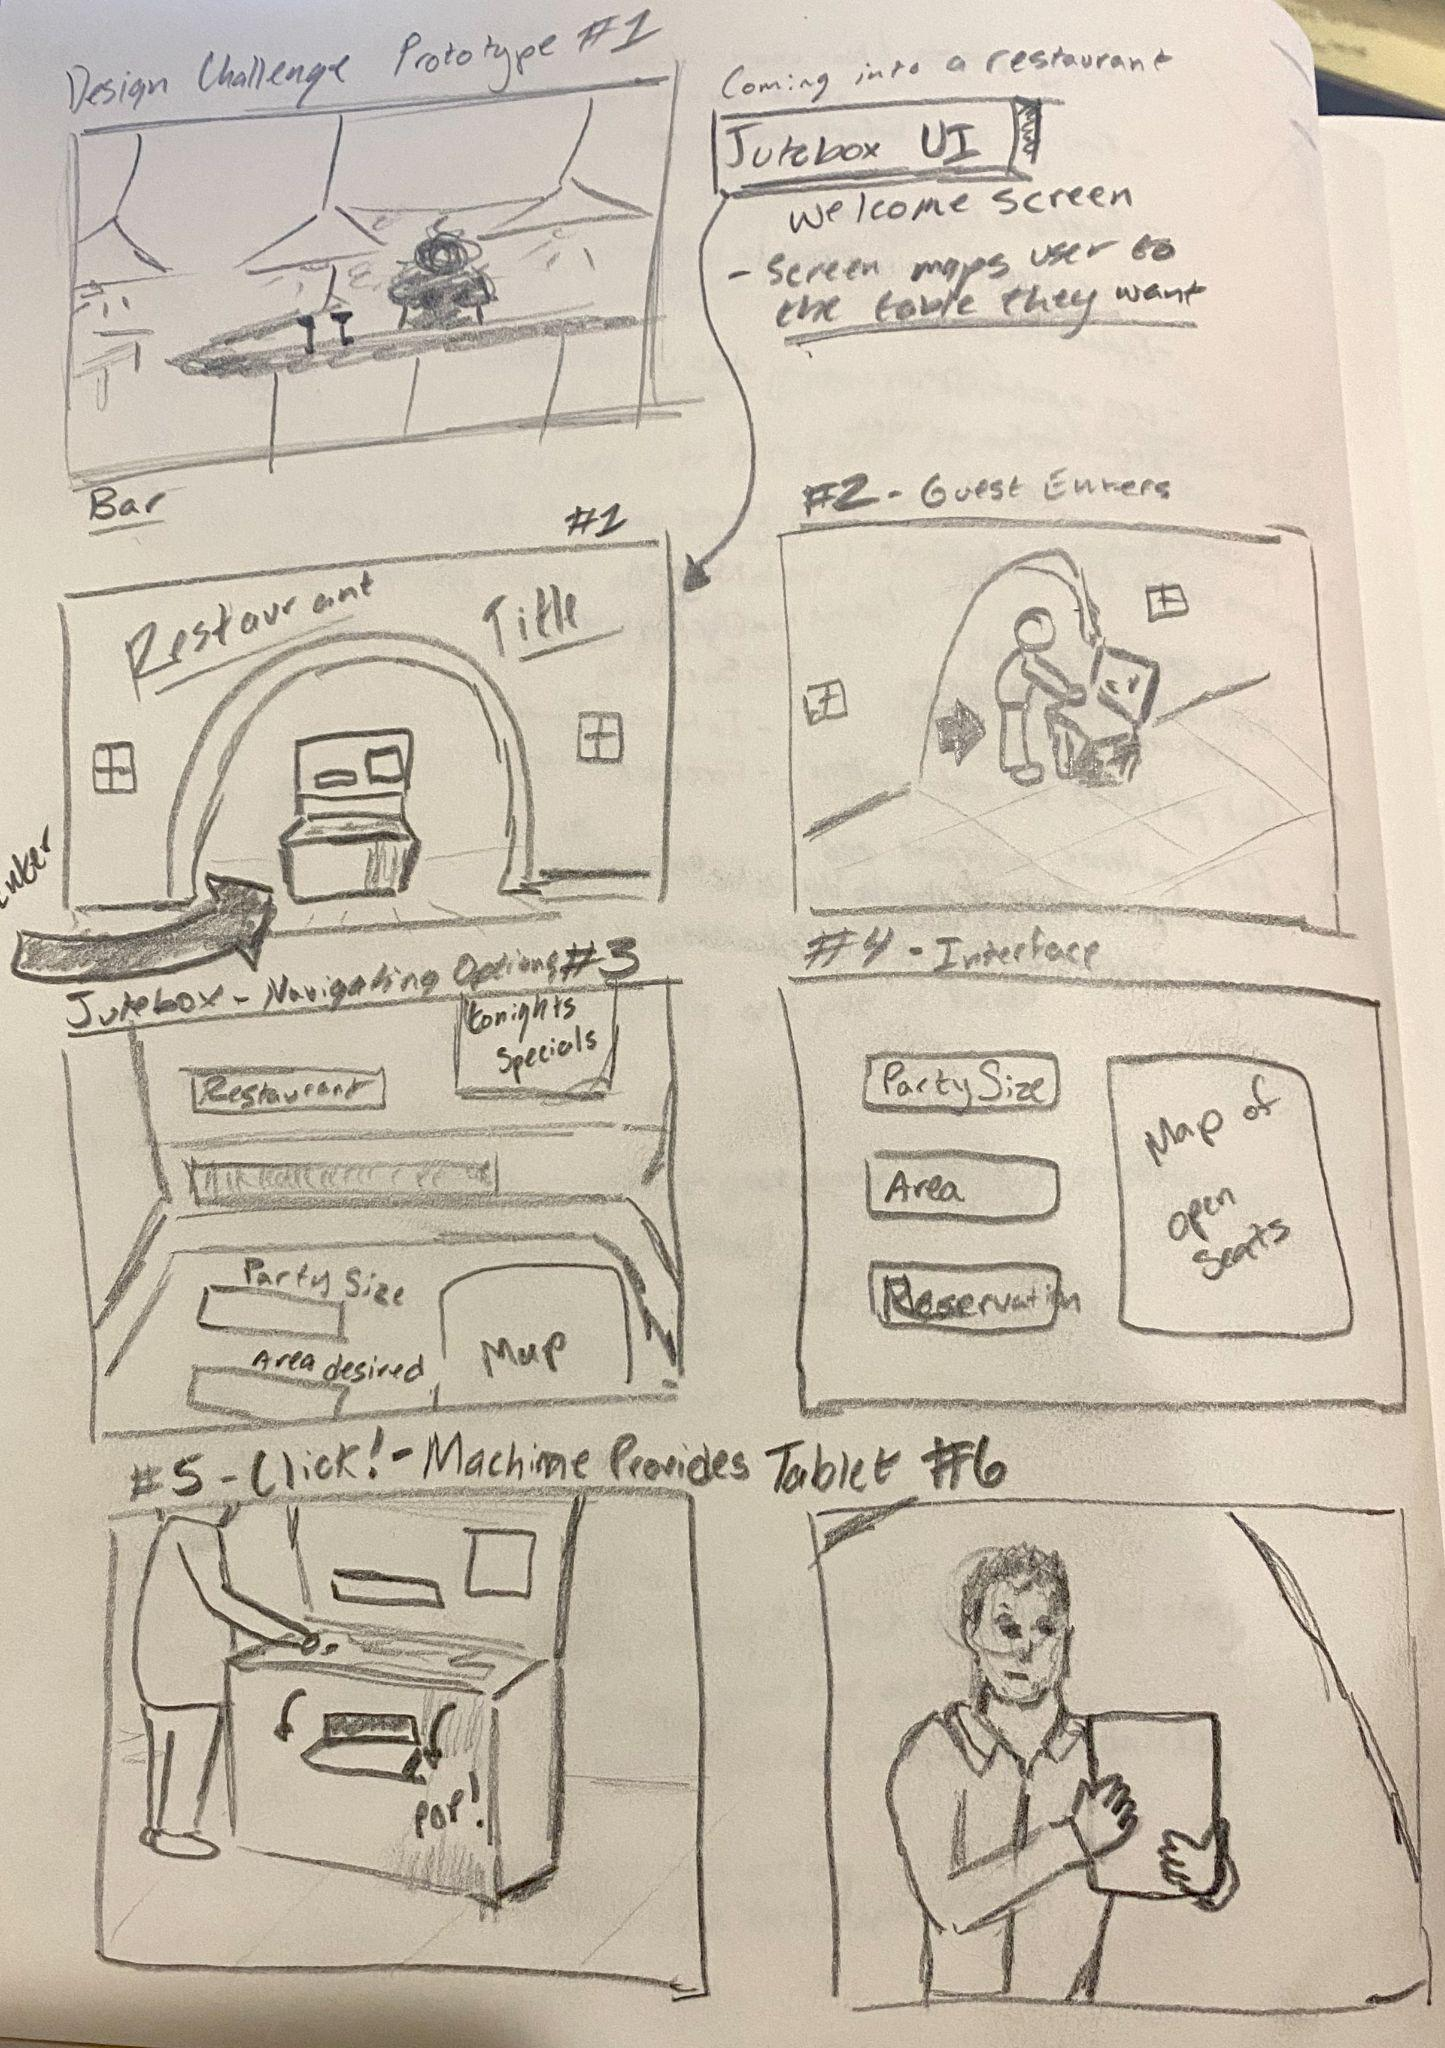 Design Challenge Prototype #1
Coming into a restaurant
Jutebox UI
Welcome Screen
- Screen maps user to
the table they want
Bar
#1
Restaurant Title
Enter
#2 - Guest Enters
Jutebox - Navigating Options #3
tonights
Specials
Restaurant
Party Size
Area desired
Map
#4 - Interface
Party Size
Area
Reservation
Map of
open
seats
#5 - Click! - Machine Provides Tablet #6
POP!